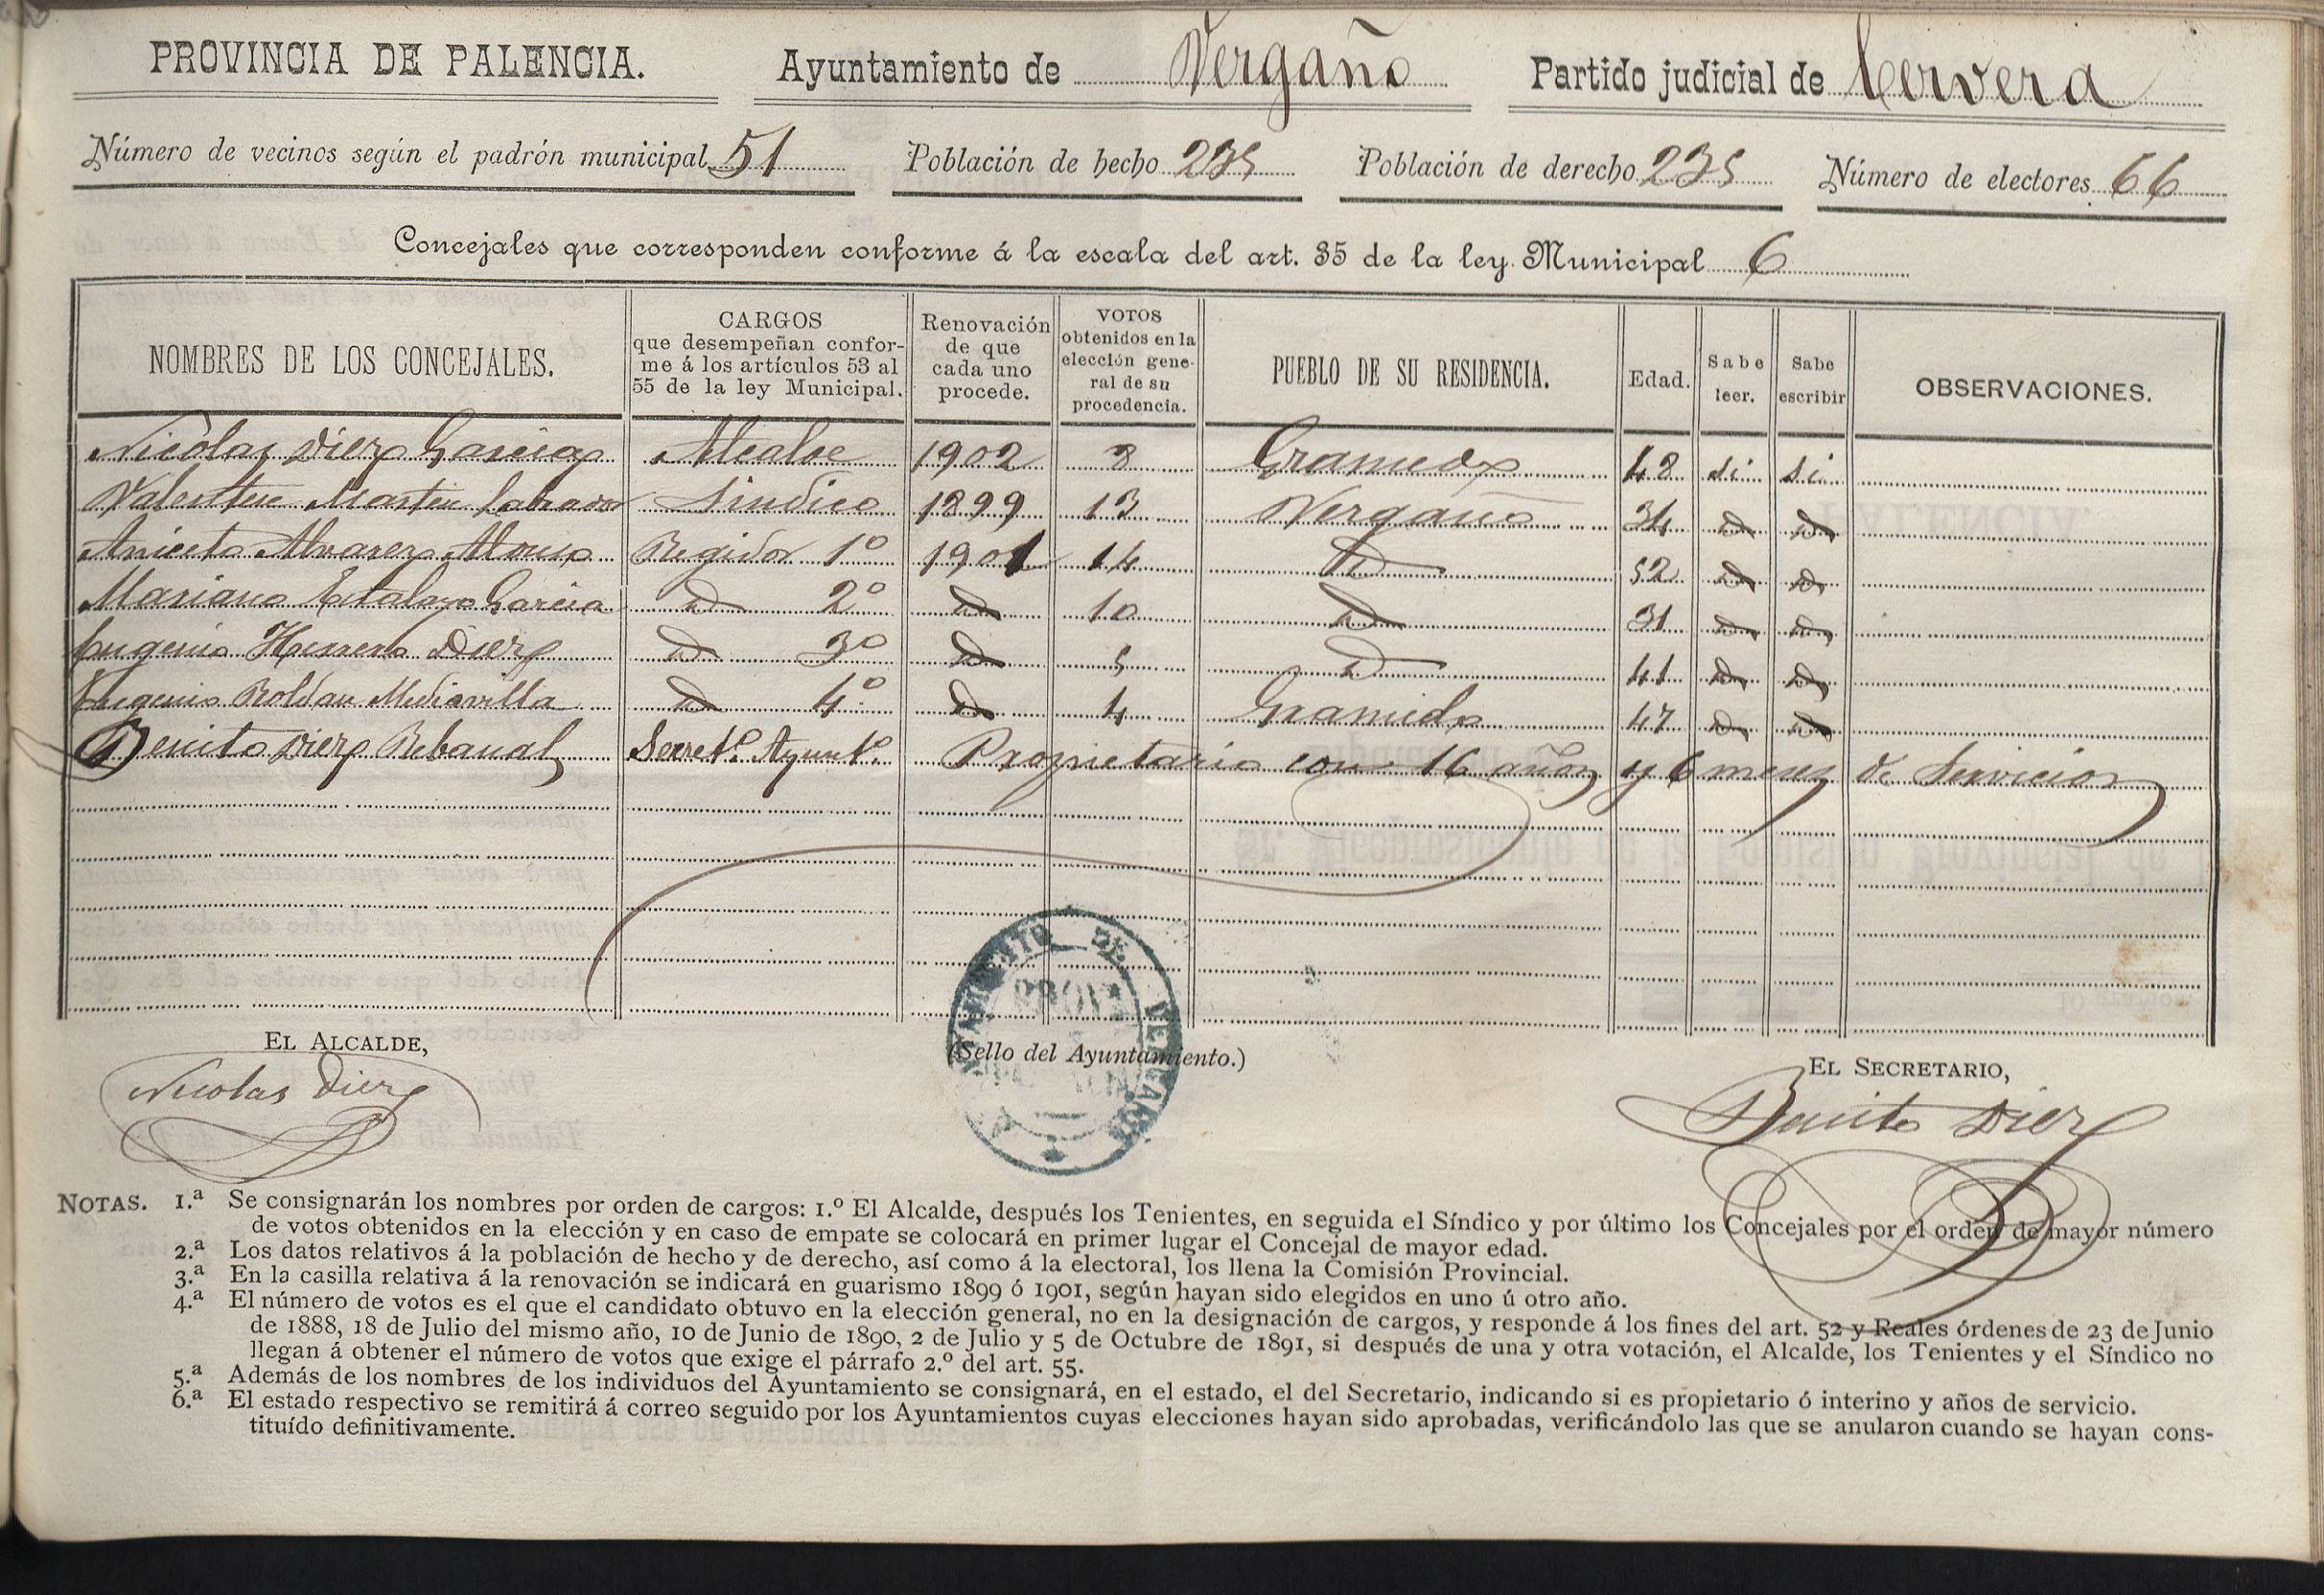 PROVINCIA DE PALENCIA. Ayuntamiento de Vergaño Partido judicial de Cervera
Número de vecinos según el padrón municipal 51 Población de hecho 235 Población de derecho 235 Número de electores 66
Concejales que corresponden conforme á la escala del art. 35 de la ley Municipal 6
NOMBRES DE LOS CONCEJALES. CARGOS que desempeñan conforme á los artículos 53 al 55 de la ley Municipal. Renovación de que cada uno procede. VOTOS obtenidos en la elección general de su procedencia. PUEBLO DE SU RESIDENCIA. Edad. Sabe leer. Sabe escribir OBSERVACIONES.
Nicolas Diez Garcia Alcalde 1902 8 Gramedo 48 si si
Valentin Martin Labrador Sindico 1899 13 Vergaño 34 id id
Aniceto Alvarez Alonso Regidor 1º 1901 14 id 52 id id
Mariano Estalayo Garcia id 2º id 10 id 31 id id
Eugenio Herrero Diez id 3º id 5 id 41 id id
Eugenio Roldan Mediavilla id 4º id 4 Gramedo 47 id id
Benito Diez Rebanal Secretº. Ayuntº. Propietario con 16 años y 6 meses de Servicios
EL ALCALDE, (Sello del Ayuntamiento.) EL SECRETARIO,
Nicolas Diez AYUNTAMIENTO DE VERGAÑO Benito Diez
NOTAS. 1.ª Se consignarán los nombres por orden de cargos: 1.º El Alcalde, después los Tenientes, en seguida el Síndico y por último los Concejales por el orden de mayor número
de votos obtenidos en la elección y en caso de empate se colocará en primer lugar el Concejal de mayor edad.
2.ª Los datos relativos á la población de hecho y de derecho, así como á la electoral, los llena la Comisión Provincial.
3.ª En la casilla relativa á la renovación se indicará en guarismo 1899 ó 1901, según hayan sido elegidos en uno ú otro año.
4.ª El número de votos es el que el candidato obtuvo en la elección general, no en la designación de cargos, y responde á los fines del art. 52 y Reales órdenes de 23 de Junio
de 1888, 18 de Julio del mismo año, 10 de Junio de 1890, 2 de Julio y 5 de Octubre de 1891, si después de una y otra votación, el Alcalde, los Tenientes y el Síndico no
llegan á obtener el número de votos que exige el párrafo 2.º del art. 55.
5.ª Además de los nombres de los individuos del Ayuntamiento se consignará, en el estado, el del Secretario, indicando si es propietario ó interino y años de servicio.
6.ª El estado respectivo se remitirá á correo seguido por los Ayuntamientos cuyas elecciones hayan sido aprobadas, verificándolo las que se anularon cuando se hayan cons-
tituído definitivamente.